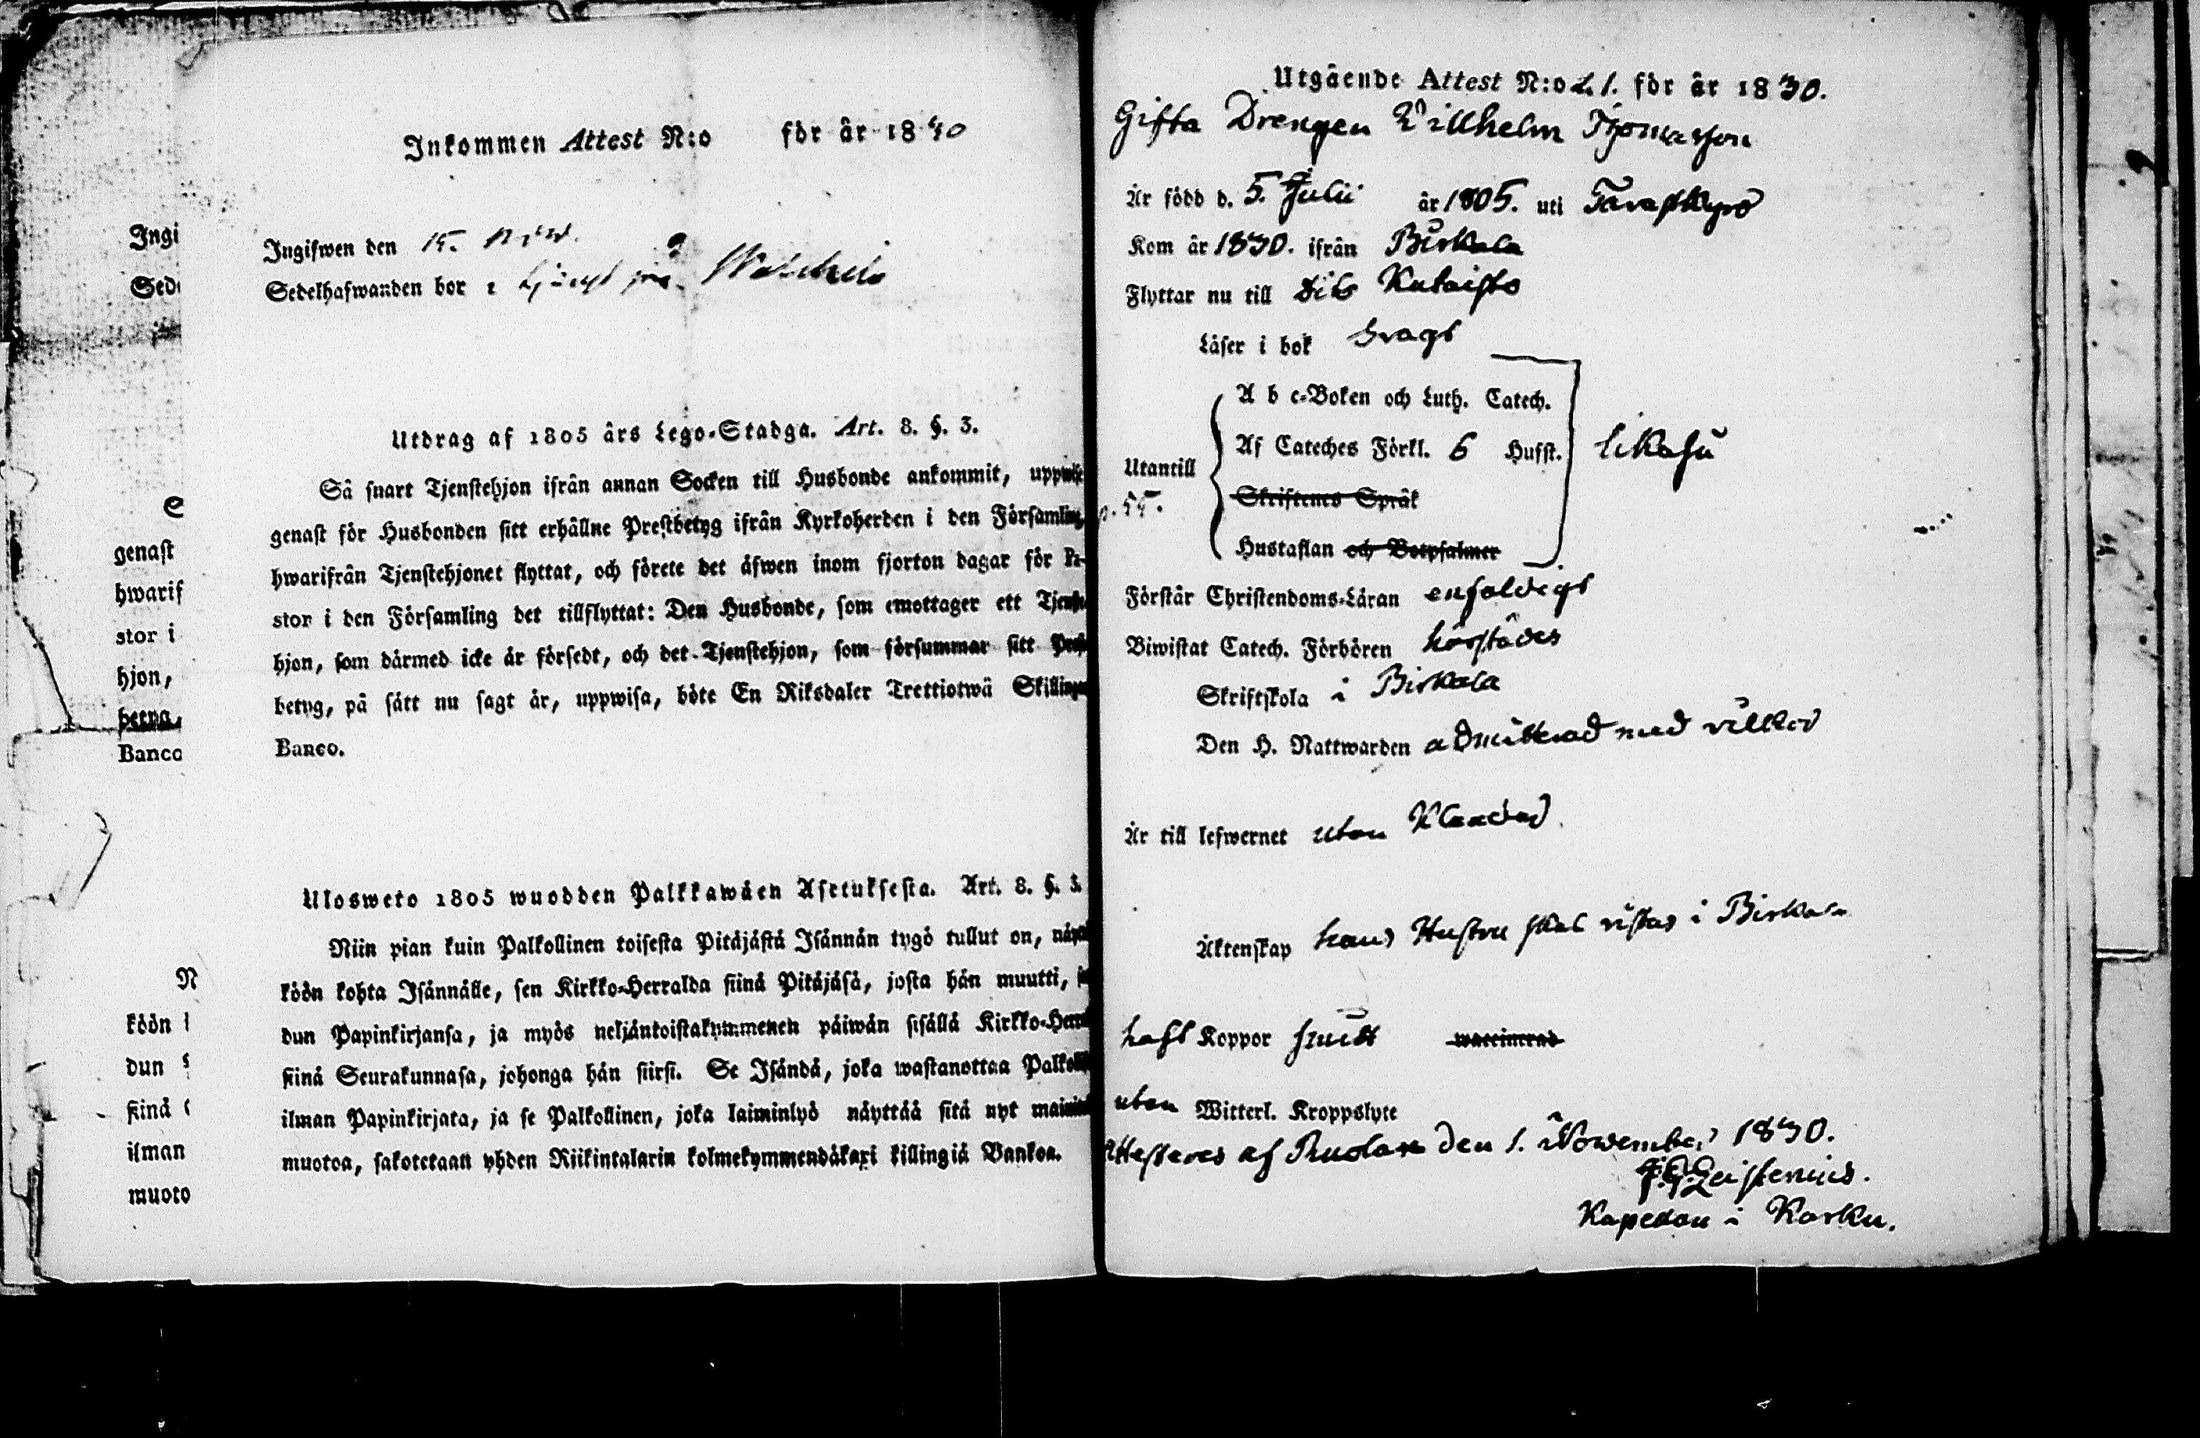 Ingi
Sede
genast
hwarif
stor i
hjon,
betyg,
Banco
N
köön
dun
siinä
ilman
muoto
Inkommen Attest N:o för år 1830
Ingifwen den 15. Nov.
Sedelhafwanden bor i
Utdrag af 1805 års Lego-Stadga. Art. 8. §. 3.
Så snart Tjenstehjon ifrån annan Socken till Husbonde ankommit, uppwise
genast för Husbonden sitt erhållne Prestbetyg ifrån Kyrkoherden i den Församling,
hwarifrån Tjenstehjonet flyttat, och förete det äfwen inom fjorton dagar för Pa-
stor i den Församling det tillflyttat: Den Husbonde, som emottager ett Tjenste-
hjon, som därmed icke är försedt, och det Tjenstehjon, som försummar sitt Prest-
betyg, på sätt nu sagt är, uppwisa, böte En Riksdaler Trettiotwå Skillingar
Banco.
Ulosweto 1805 wuodden Palkkawäen Asetuksesta. Art. 8. §. 3.
Niin pian kuin Palkollinen toisesta Pitäjästä Isännän tygö tullut on, näyttä-
köön kohta Isännälle, sen Kirkko-Herralda siinä Pitäjäsä, josta hän muutti,
dun Papinkirjansa, ja myös neljäntoistakymmenen päiwän sisällä Kirkko-Herral
siinä Seurakunnasa, johonga hän siirsi. Se Isändä, joka wastanottaa Palkolli
ilman Papinkirjata, ja se Palkollinen, joka laiminlyö näyttää sitä nyt mainit
muotoa, sakotetaan yhden Riikintalarin kolmekymmendäkaxi killingiä Bankoa.
Utgående Attest N:o 21. för år 1830.
Gifta Drengen Willhelm Thomasson
Är född d. 5. Julii år 1805. uti Tavastkyro
Kom år 1830. ifrån Birkala
Flyttar nu till dito Kutaisto
Läser i bok svagt
A b c-Boken och Luth. Catech.
Af Cateches Förkl. 6 Hufst. likaså
Utantill
Skriftenes Språk
Hustaflan och Botpsalmer
Förstår Christendoms-Läran enfaldigt
Biwistat Catech. Förhören härstädes
Skriftskola i Birkala
Den H. Nattwarden admitterad med vilkor
Är till lefwernet utan Klander
Äktenskap hans Hustru skal vistas i Birkala
haft Koppor waccinerad
utan Witterl. Kroppslyte
Attesteras af den 1. November 1830.
Kapellan i Karku.